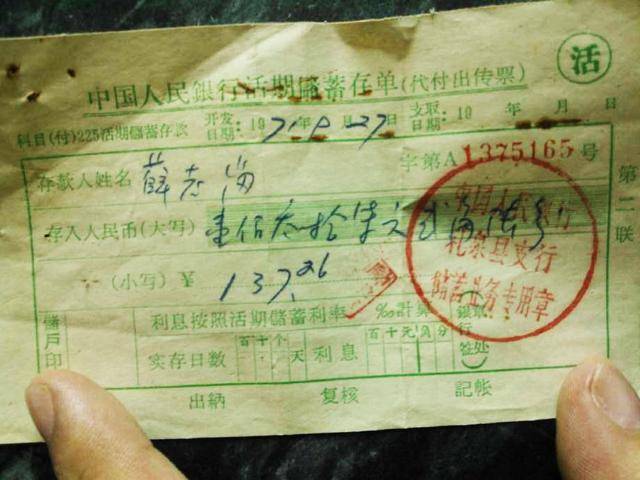 活
中国人民銀行活期儲蓄存单(代付出传票)
科目(付)225活期儲蓄存款 开发日期:1971-9-27日 支取日期:19 年 月 日
存款人姓名 薛志 字第A1375165号
存入人民币(大写) 壹佰叁拾柒元
(小写)¥ 137.26
第二联
中国人民銀行
县支行
儲蓄业务专用章
儲戶印
利息按照活期儲蓄利率 ‰計算
銀行签处
实存日数 百十个天 利息 百十元角分
出納 复核 記帐